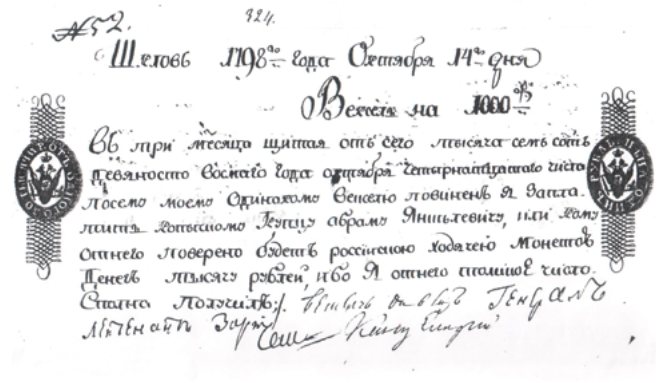 № 52.
324.
Шкловъ 1798го года Октября 14го дня
Вексель на 1000
Въ три месяца щитая отъ сего тысяча семь сотъ
девяносто восмаго года октября четырнатцатаго числа
посему моему Одинакому Векселю повиненъ я Запла-
тить копысному Купцу абраму Янкелевичу, или кому
отнего поверено будетъ россиискою ходячею Монетою
Денегъ тысячу рублей, ибо Я отнего толикое число
Сполна Получилъ;
Генералъ